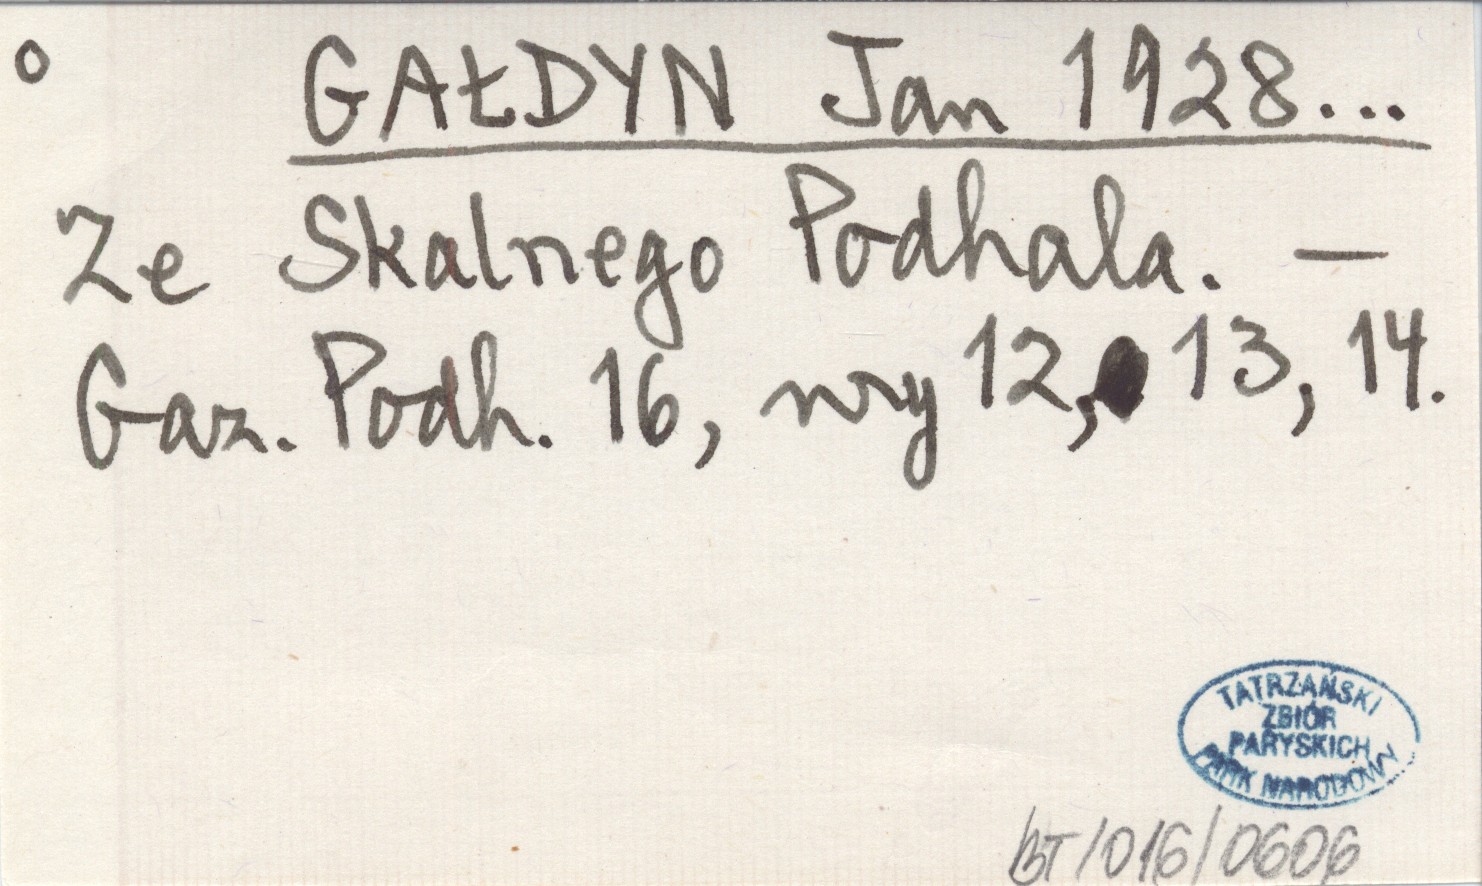 o GAŁDYN Jan 1928...
Ze Skalnego Podhala. —
Gaz. Podh. 16, nry 12, 13, 14.
TATRZAŃSKI
ZBIÓR
PARYSKICH
PARK NARODOWY
BT/016/0606